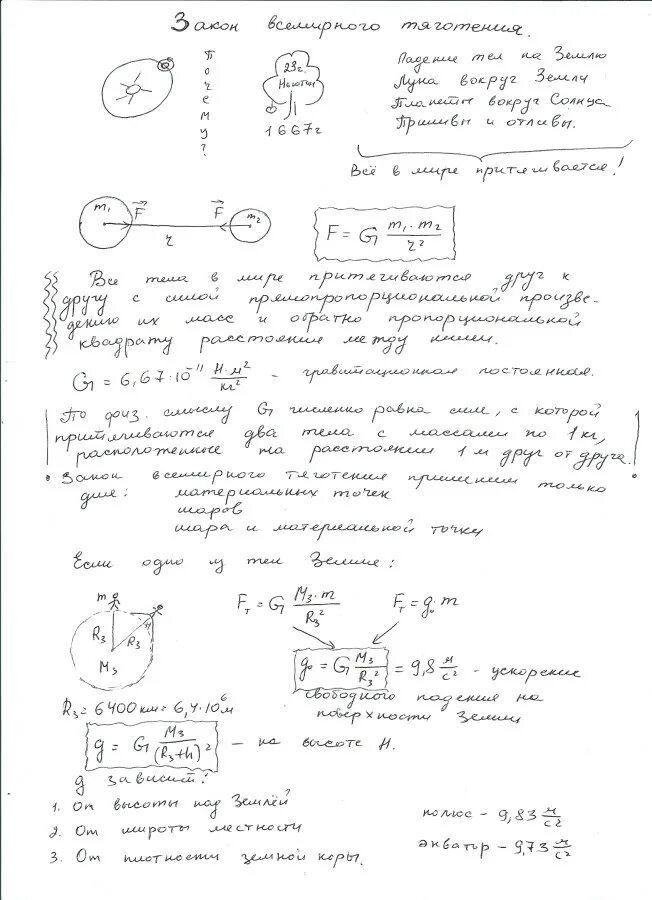 Закон всемирного тяготения.
Почему?
23г.
Ньютон
1667г
Падение тел на Землю
Луна вокруг Земли
Планеты вокруг Солнца
Приливы и отливы.
Всё в мире притягивается!
m₁ F⃗ F⃗ m₂
r
F = G m₁·m₂/r²
Все тела в мире притягиваются друг к
другу с силой прямопропорциональной произве-
дению их масс и обратно пропорциональной
квадрату расстояния между ними.
G = 6,67·10⁻¹¹ Н·м²/кг² - гравитационная постоянная.
По физ. смыслу G численно равна силе, с которой
притягиваются два тела с массами по 1 кг,
расположенные на расстоянии 1 м друг от друга.
• Закон всемирного тяготения применим только
для: материальных точек
шаров
шара и материальной точки
Если одно из тел Земля:
m
H
R₃ R₃
M₃
Fт = G M₃·m/R₃² Fт = g₀·m
g₀ = G M₃/R₃² = 9,8 м/с² - ускорение
свободного падения на
поверхности Земли
R₃ = 6400 км = 6,4·10⁶ м
g = G M₃/(R₃+h)² - на высоте H.
g зависит:
1. От высоты над Землёй
2. От широты местности
3. От плотности земной коры.
полюс - 9,83 м/с²
экватор - 9,73 м/с²